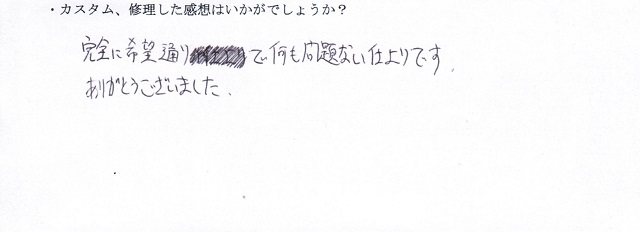 ・カスタム、修理した感想はいかがでしょうか？
完全に希望通りで何も問題ない仕上りです.
ありがとうございました.